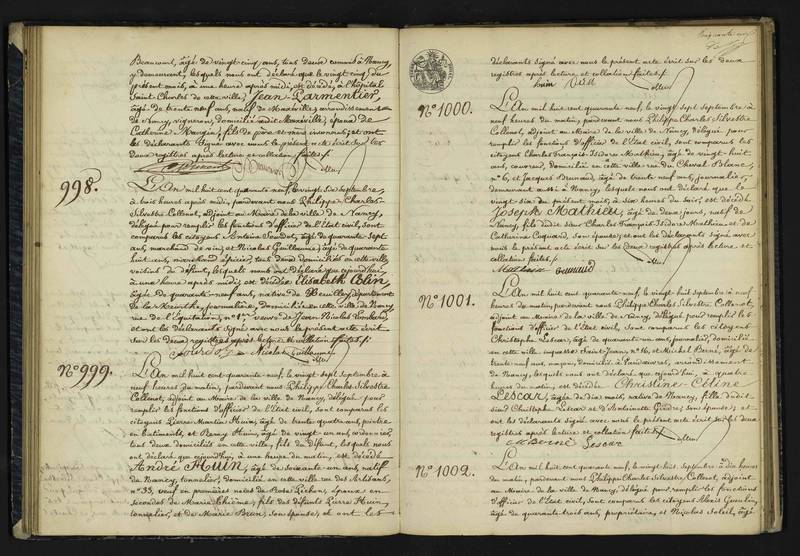 Beaucourt, âgé de vingt cinq ans, tous deux commis à Nancy
y demeurant, lesquels nous ont déclaré que le vingt cinq du
présent mois, à une heure après midi, est décédé, à l'hôpital
Saint Charles de cette ville, Jean Parmentier
âgé de trente neuf ans, natif de Maxéville, arrondissement
de Nancy, vigneron, domicilié audit Maxéville, époux de
Catherine Mangin, fils de père et mère inconnus; et ont
les déclarants signé avec nous le présent acte écrit sur les
deux registres après lecture et collation faites.
998.
L'An mil huit cent quarante neuf, le vingt six Septembre,
à trois heures après midi, pardevant nous Philippe Charles
Silvestre Collenot, adjoint au Maire de la ville de Nancy,
délégué pour remplir les fonctions d'officier de l'État civil, sont
comparus les citoyens Antoine Sourdot, âgé de quarante sept
ans, marchand de vin, et Nicolas Guillaume, âgé de quarante
huit ans, marchand épicier, tous deux domiciliés en cette ville
voisins du défunt, lesquels nous ont déclaré que cejourd'hui,
à une heure après midi, est décédée Elisabeth Colin,
âgée de quarante neuf ans, native de département
de la Meurthe, journalière, domiciliée en cette ville de Nancy,
rue de l'Équitation, n° 1er, veuve de Jean Nicolas
et ont les déclarants signé avec nous le présent acte écrit
sur les deux registres après lecture et collation faites.
Sourdot Nicolas Guillaume
N° 999.
L'An mil huit cent quarante neuf, le vingt sept Septembre à
neuf heures du matin, pardevant nous Philippe Charles Silvestre
Collenot, adjoint au Maire de la ville de Nancy, délégué pour
remplir les fonctions d'officier de l'État civil, sont comparus les
citoyens Pierre Martin Huin, âgé de trente quatre ans, peintre
en bâtiments, et Remy Huin, âgé de vingt un ans, cordonnier,
tous deux domiciliés en cette ville, fils du défunt, lesquels nous
ont déclaré que cejourd'hui, à une heure du matin, est décédé
André Huin, âgé de soixante un ans, natif
de Nancy, tonnelier, domicilié en cette ville rue des Artisans,
n° 33, veuf en premières noces de Rose Pichon, époux en
secondes de Marie Thérèse, fils des défunts Pierre Huin,
tonnelier, et de Marie Brun, son épouse; et ont les
déclarants signé avec nous le présent acte écrit sur les deux
registres après lecture et collation faites.
huin
N° 1000.
L'An mil huit cent quarante neuf, le vingt sept Septembre à
neuf heures du matin, pardevant nous Philippe Charles Silvestre
Collenot, adjoint au Maire de la ville de Nancy, délégué pour
remplir les fonctions d'officier de l'État civil, sont comparus les
citoyens Charles François Isidore Mathieu, âgé de vingt huit
ans, couvreur, domicilié en cette ville rue du Cheval Blanc,
n° 6, et Jacques Brunaud, âgé de trente neuf ans, journalier,
demeurant aussi à Nancy, lesquels nous ont déclaré que le
vingt six du présent mois, à six heures du soir, est décédé
Joseph Mathieu, âgé de deux jours, natif de
Nancy, fils dudit sieur Charles François Isidore Mathieu et de
Catherine, son épouse; et ont les déclarants signé avec
nous le présent acte écrit sur les deux registres après lecture et
collation faites.
Mathieu
N° 1001.
L'An mil huit cent quarante neuf, le vingt sept Septembre à neuf
heures du matin, pardevant nous Philippe Charles Silvestre Collenot,
adjoint au Maire de la ville de Nancy, délégué pour remplir les
fonctions d'officier de l'État civil, sont comparus les citoyens
Christophe Lescar, âgé de quarante un ans, journalier, domicilié
en cette ville impasse Saint Jean, n° 16, et Michel Berné, âgé de
trente neuf ans, maçon, domicilié à, arrondissement
de Nancy, lesquels nous ont déclaré que cejourd'hui, à quatre
heures du matin, est décédée Christine Céline
Lescar, âgée de dix mois, native de Nancy, fille dudit
sieur Christophe Lescar et d'Antoinette, son épouse; et
ont les déclarants signé avec nous le présent acte écrit sur les deux
registres après lecture et collation faites.
Berné Lescar
N° 1002.
L'An mil huit cent quarante neuf, le vingt huit Septembre à dix heures
du matin, pardevant nous Philippe Charles Silvestre Collenot, adjoint
au Maire de la ville de Nancy, délégué pour remplir les fonctions
d'officier de l'État civil, sont comparus les citoyens Alexis Guerlin,
âgé de quarante trois ans, propriétaire, et Nicolas Soleil, âgé